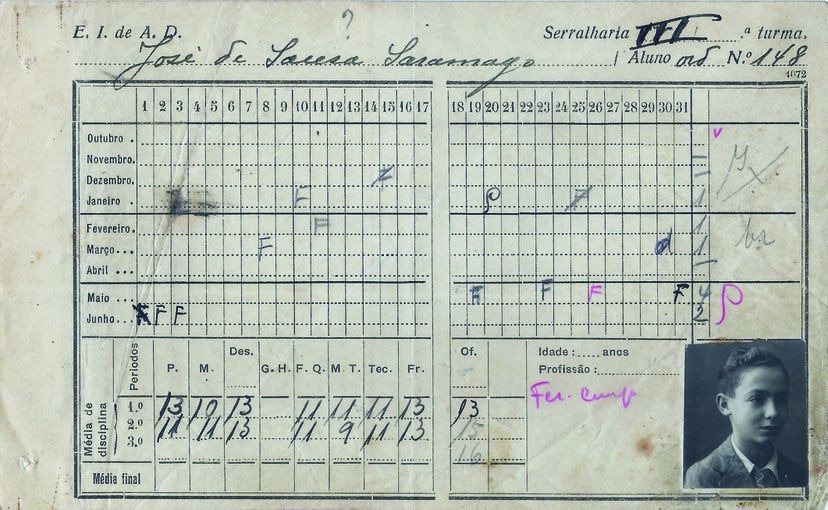 ?
E. I. de A. D. Serralharia III .ª turma.
José de Sousa Saramago Aluno ord N.º 148
1072
1 2 3 4 5 6 7 8 9 10 11 12 13 14 15 16 17 18 19 20 21 22 23 24 25 26 27 28 29 30 31
Outubro . v
Novembro. —
Dezembro. F —
Janeiro . F P F 1
Fevereiro . F 1
Março ... F d 1
Abril ... —
Maio ... F F F F 4 P
Junho ... F F F 2
Periodos P. M. Des. G. H. F. Q. M. T. Tec. Fr. Of. Idade : ..... anos
Profissão :
Média de disciplina
1.º 13 10 13 11 11 11 13 13
2.º 11 11 13 11 9 11 13 15
3.º 16
Média final